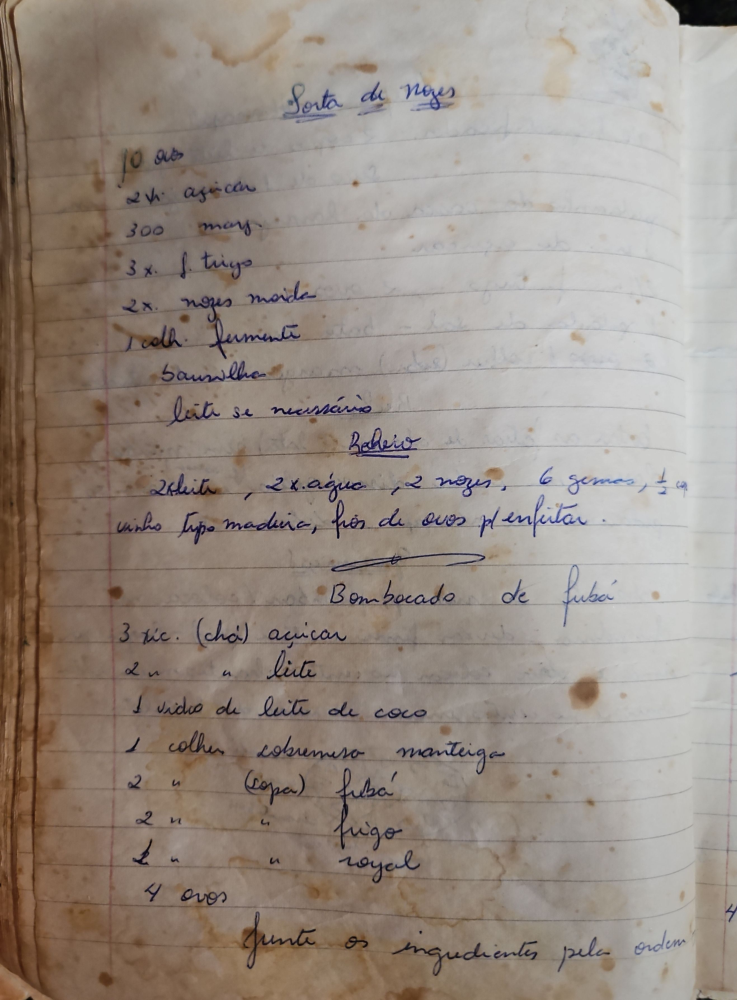 Torta de Nozes
10 ovos
2 x. açúcar
300 marg.
3 x. f. trigo
2 x. nozes moida
1 colh. fermento
baunilha
leite se necessário
Recheio
2x leite, 2 x. água, 2 nozes, 6 gemas, 1/2
vinho tipo madeira, fios de ovos p/ enfeitar.
Bombocado de fubá
3 xic. (chá) açúcar
2 " " leite
1 vidro de leite de coco
1 colher sobremesa manteiga
2 " (sopa) fubá
2 " " trigo
1 " " royal
4 ovos
Junte os ingredientes pela ordem
4